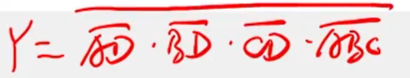 Y = \overline{\overline{AD} · \overline{BD} · \overline{CD} · \overline{ABC}}